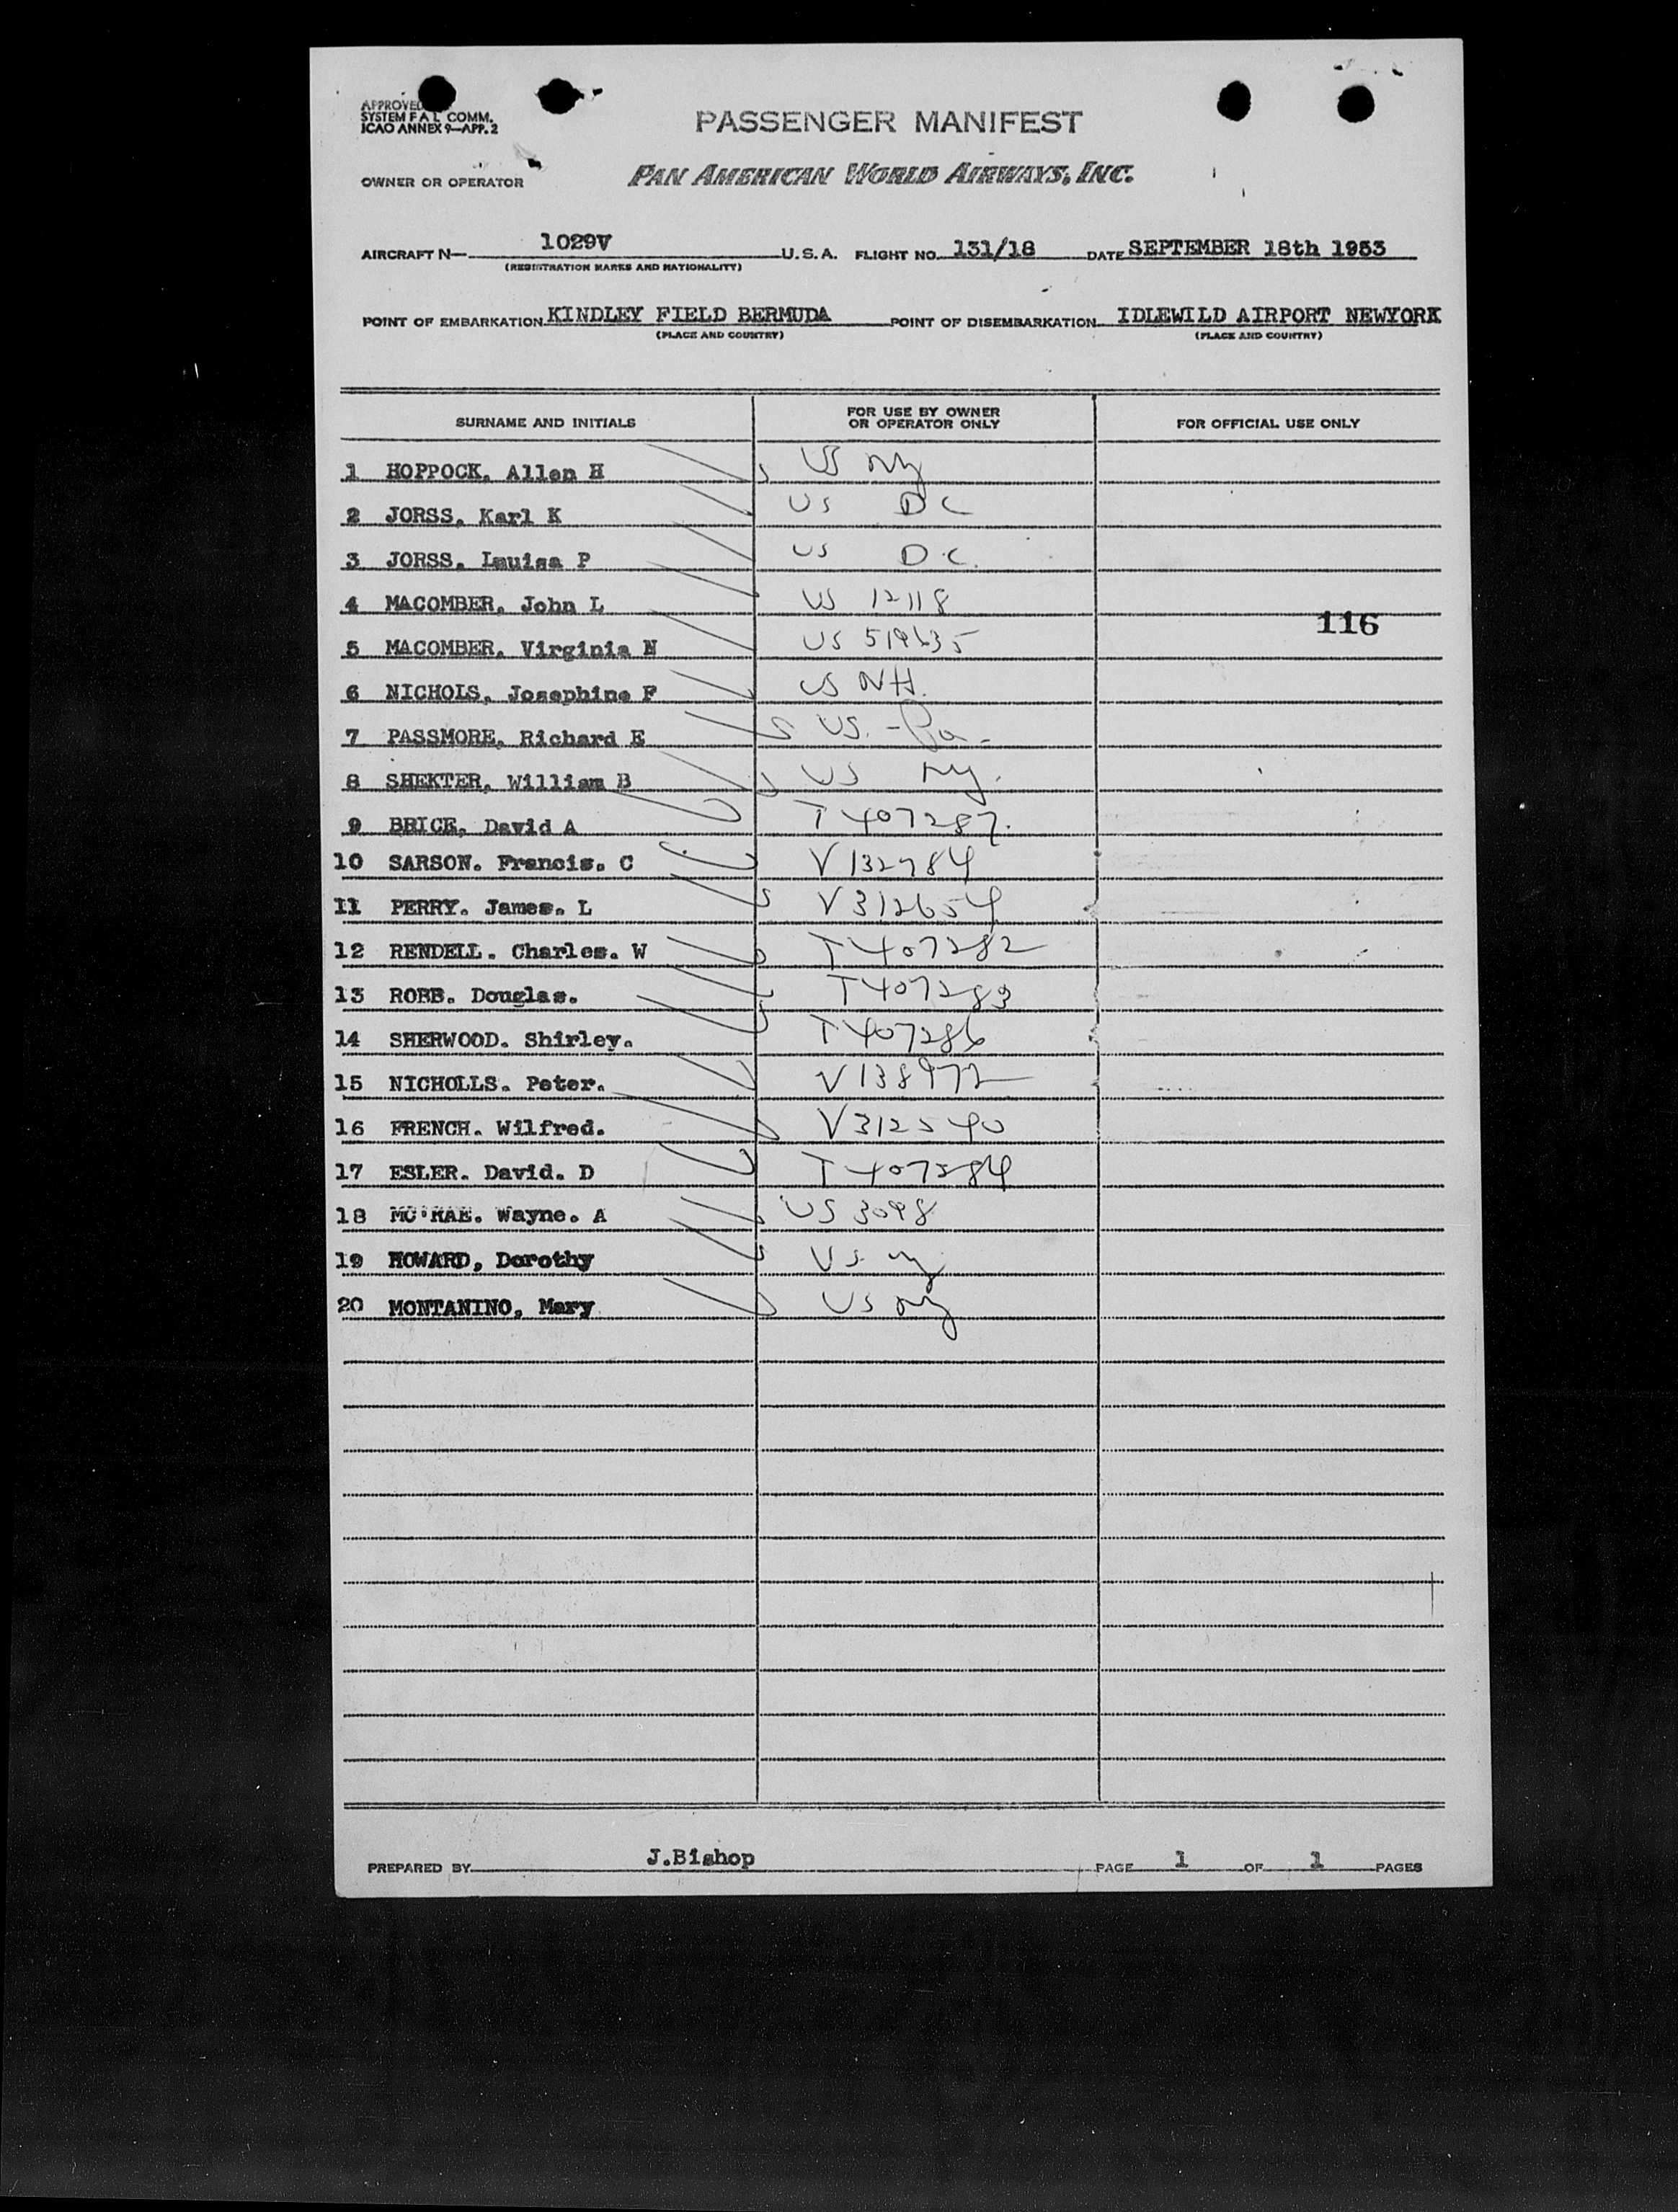 APPROVED
SYSTEM F A L COMM.
ICAO ANNEX 9—APP. 2
PASSENGER MANIFEST
OWNER OR OPERATOR PAN AMERICAN WORLD AIRWAYS, INC.
AIRCRAFT N— 1029V U.S.A. FLIGHT NO. 131/18 DATE SEPTEMBER 18th 1953
(REGISTRATION MARKS AND NATIONALITY)
POINT OF EMBARKATION KINDLEY FIELD BERMUDA POINT OF DISEMBARKATION IDLEWILD AIRPORT NEWYORK
(PLACE AND COUNTRY) (PLACE AND COUNTRY)
SURNAME AND INITIALS FOR USE BY OWNER OR OPERATOR ONLY FOR OFFICIAL USE ONLY
1 HOPPOCK, Allen H US NY
2 JORSS, Karl K US DC
3 JORSS, Lauisa P US D.C.
4 MACOMBER, John L US 12118
116
5 MACOMBER, Virginia N US 519635
6 NICHOLS, Josephine F US NH.
7 PASSMORE, Richard E US. - Pa -
8 SHEKTER, William B US Ny.
9 BRICE, David A T407287.
10 SARSON. Francis. C V132784
11 PERRY. James. L V312654
12 RENDELL. Charles. W T407282
13 ROBB. Douglas. T407283
14 SHERWOOD. Shirley. T407286
15 NICHOLLS. Peter. V138972
16 FRENCH. Wilfred. V312540
17 ESLER. David. D T407284
18 MC'RAE. Wayne. A US 3098
19 HOWARD, Dorothy US ny
20 MONTANINO, Mary US ny
PREPARED BY J.Bishop PAGE 1 OF 1 PAGES